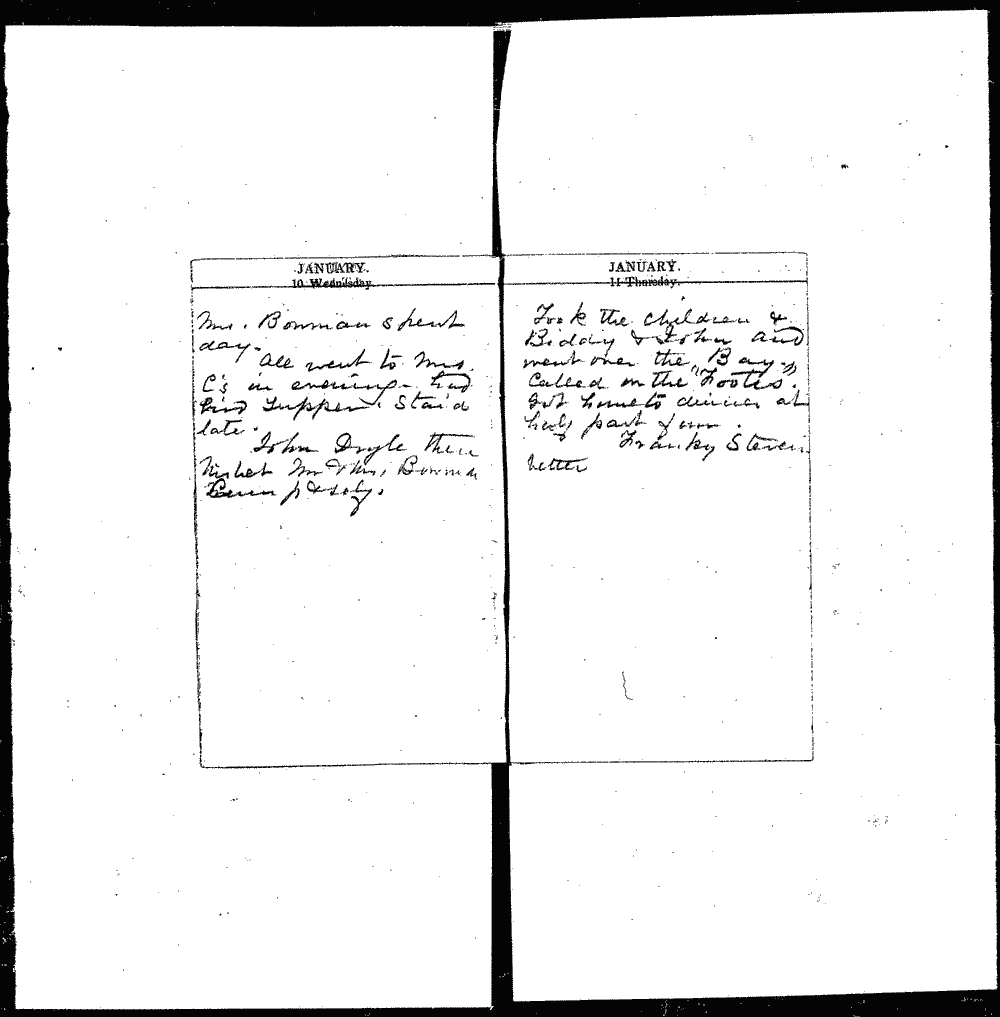 JANUARY.
10 Wednesday.
Mrs. Bowman spent
day.
All went to Mrs.
C's in evening - had
supper. Staid
late.
John Doyle there
Nisbet Mr & Mrs. Bowman
JANUARY.
11 Thursday.
Took the children &
Biddy & John and
went over the "Bay."
Called on the Footes.
Got home to dinner at
half past four.
Franky Steven
better